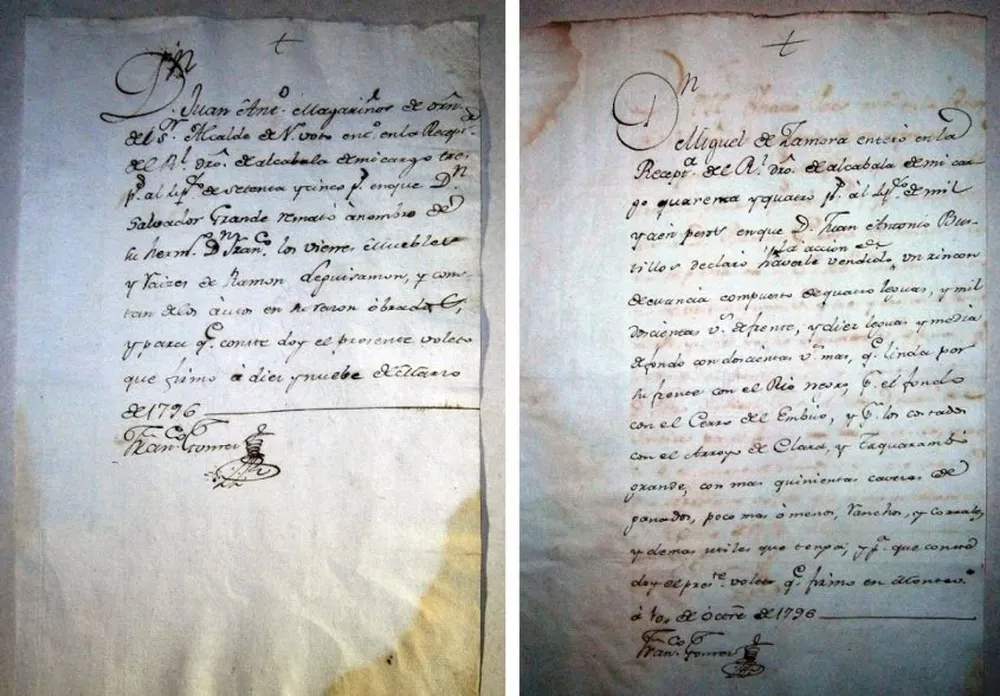 †
Dn
D. Juan Anto. Magariños de orn.
del Sr. Alcalde de Nº voto entº. en la Recept.a
del Rl. dro. de alcabala de mi cargo tres
ps. al de setenta y cinco ps. en que Dn
Salvador Grande remató à nombre de
su herm.o Dn Franco. los vienes Muebles
y Raizes de Ramon y cons
tan de los autos en su razon obrados,
y para q.e conste doy el presente voleto
que firmo à diez y nuebe de Marzo
de 1796
Franco. Gomez
†
Dn
Miguel de Zamora enteró en la
Recepta. del Rl. dro. de alcabala de mi car
go quarenta y quatro ps. al de mil
y cien pesos en que D. Juan Antonio Bus-
tillos declaró haverle vendido la accion de un rincon
de estancia compuesto de quatro leguas, y mil
doscientas vs. de frente, y diez leguas y media
de fondo con doscientas vs. mas, q.e linda por
su frente con el Rio negro, pr. el fondo
con el Cerro del y pr. los costados
con el Arroyo de Clara, y Taquarembo
grande, con mas quinientas cavezas de
ganados, poco mas ó menos, Ranchos, y Corrales
y demas utiles que tenga, y pa. que conste
doy el preste. voleto q.e firmo en Montevo.
à 10 de Octre de 1796
Franco. Gomez